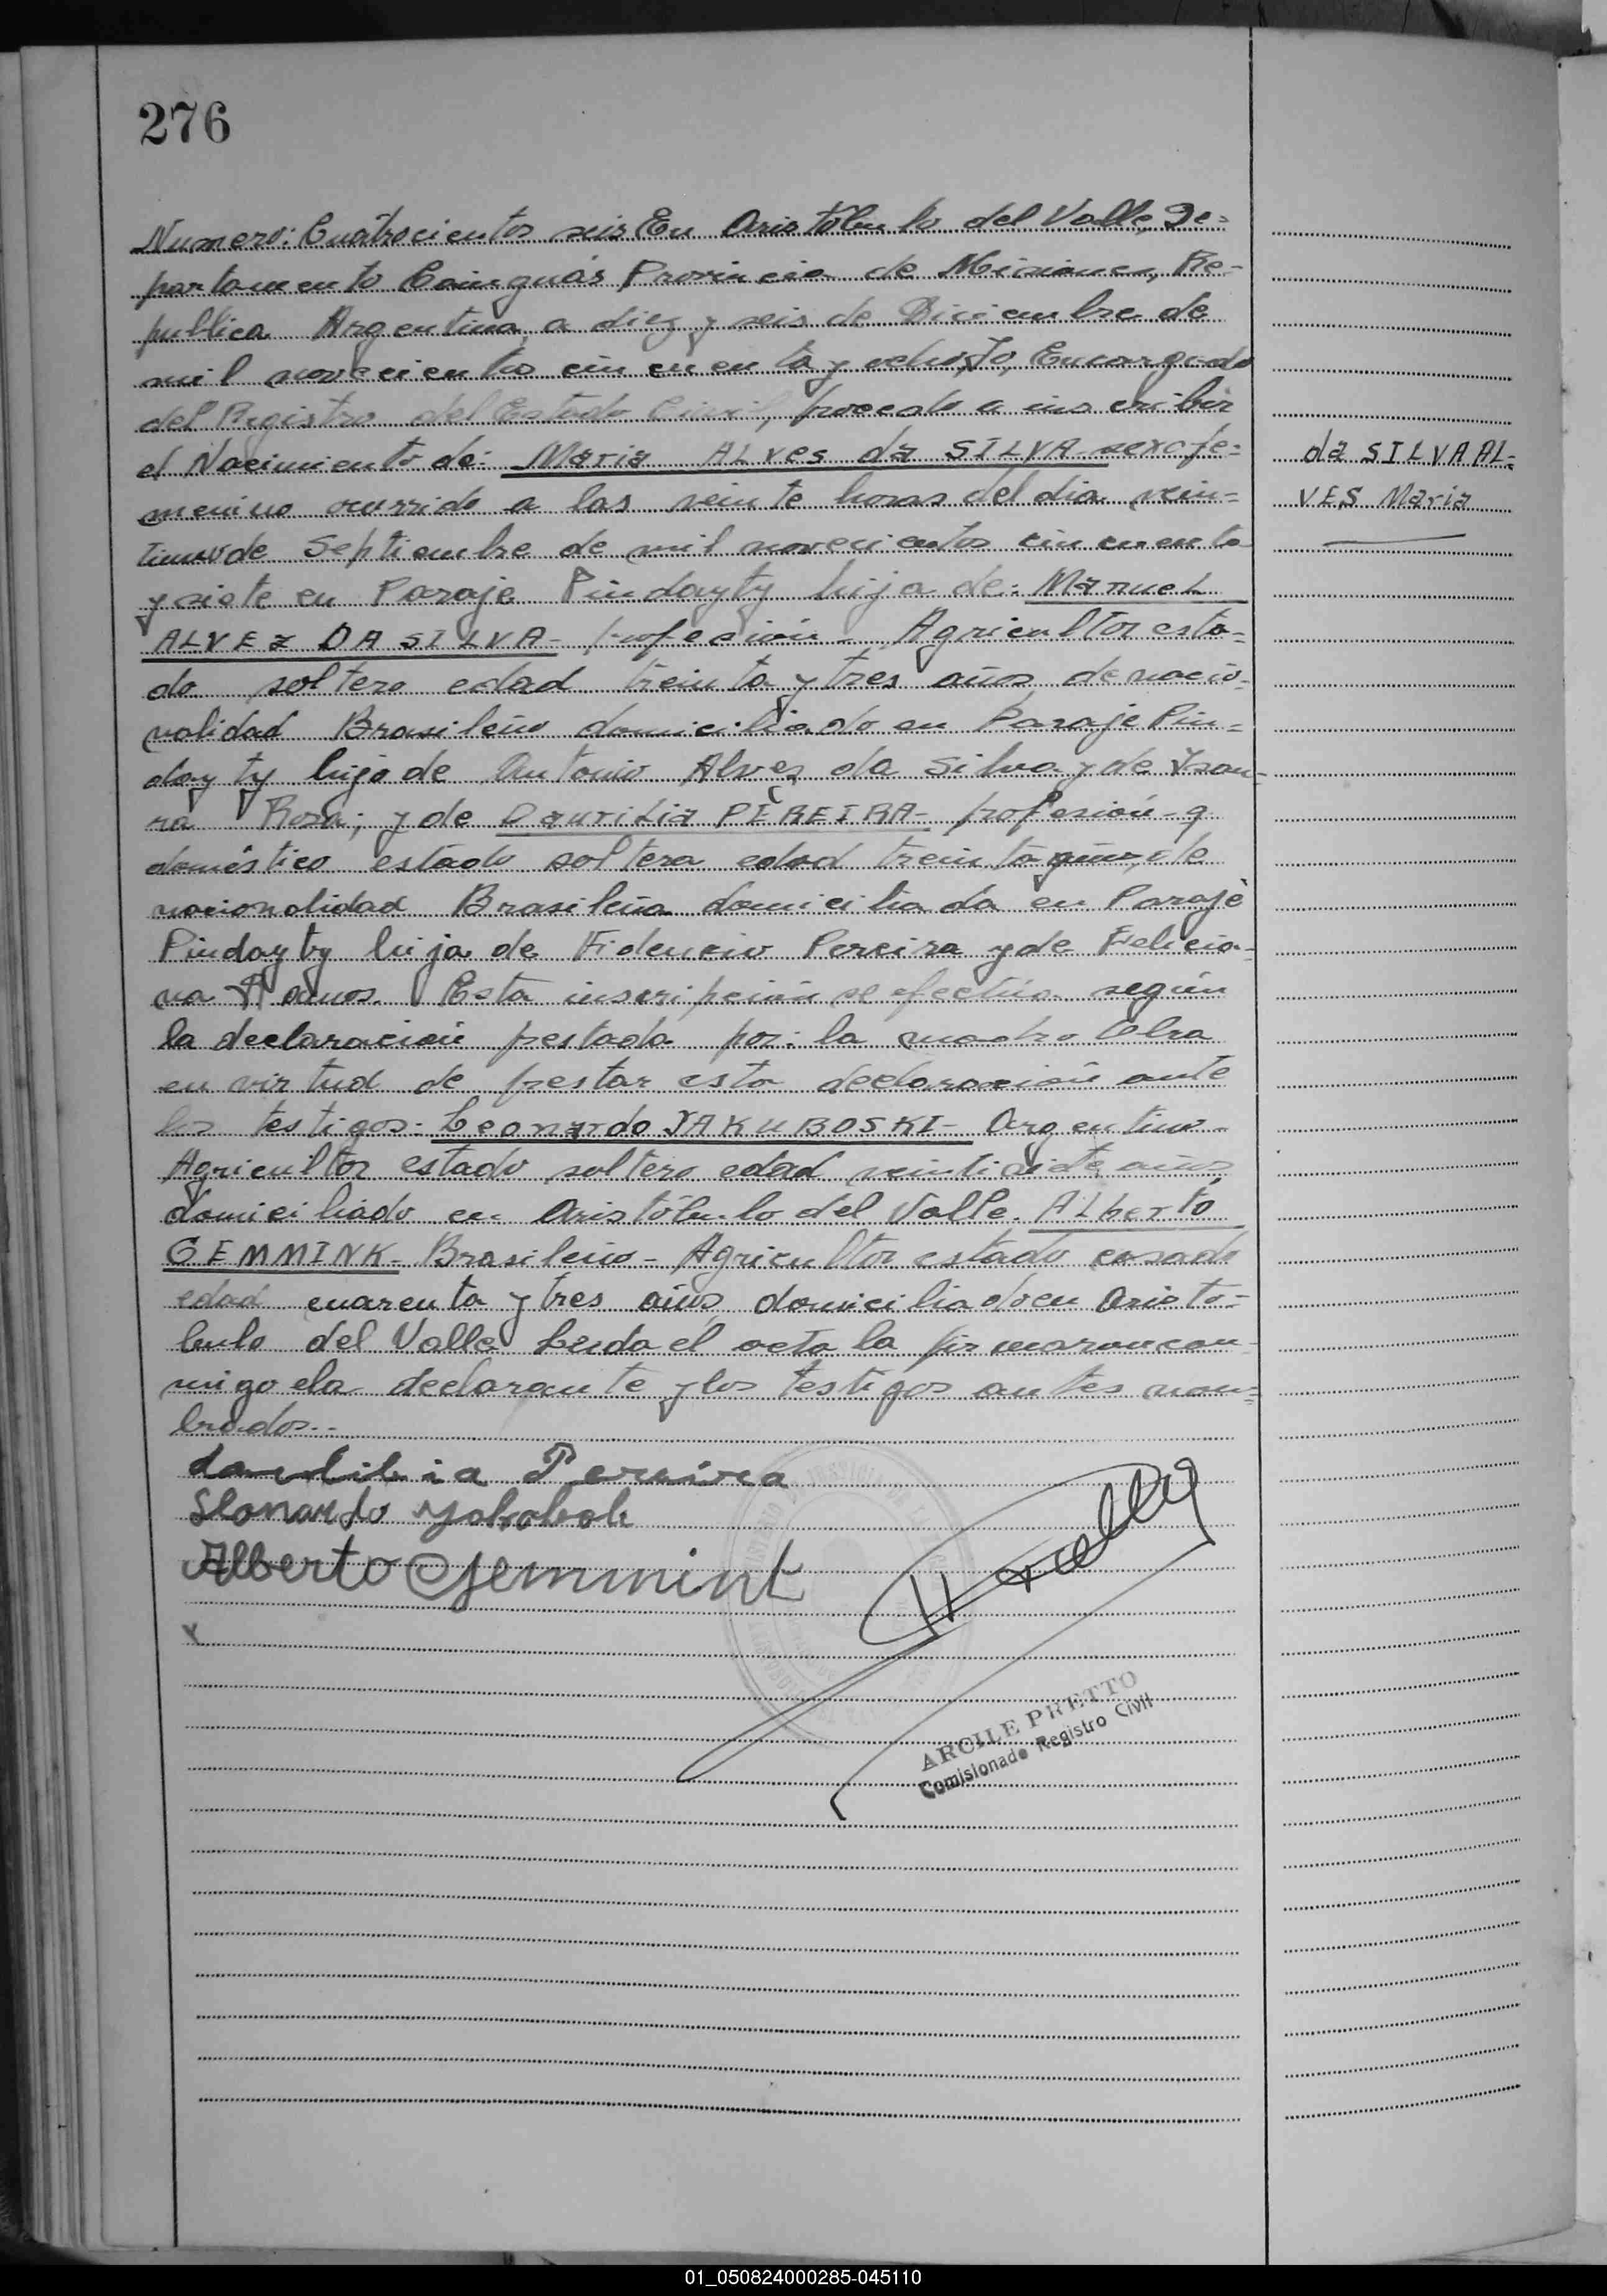 276
Numero: Cuatrocientos seis En Aristóbulo del Valle, De=
partamento Cainguás Provincia de Misiones, Re-
publica Argentina, a diez y seis de Diciembre de
mil novecientos cincuenta y ocho, Yo, Encargado
del Registro del Estado Civil, procedo a inscribir
el Nacimiento de: Maria ALves da SILVA sexo fe=
menino ocurrido a las veinte horas del dia vein=
tinuvde Septiembre de mil novecientos cincuenta
y siete en Paraje Pindayty hija de: Manuel
ALVEz DA SILVA- profesión- Agricultor esta=
do soltero edad treinta y tres años de nacio=
nalidad Brasileño domiciliado en Paraje Pin=
dayty hijo de Antonio Alvez da Silva y de Ysau-
ra Rosa; y de Daurilia PEREIRA- profesión- q.
doméstico estado soltera edad treinta años, de
nacionalidad Brasileña domiciliada en Paraje
Pindayty hija de Fidencio Pereira y de Felicia-
na Ramos. Esta inscripción se efectúa según
la declaración prestada por: la madre Obra
en virtud de prestar esta declaración ante
los testigos: Leonardo YAKUBOSKI- Argentino-
Agricultor estado soltero edad veintisiete años,
domiciliado en Aristóbulo del Valle. ALberto
GEMMINK- Brasileño- Agricultor estado casado
edad cuarenta y tres años, domiciliado en Aristo=
bulo del Valle Leida el acta la firmaron con-
migo ela declarante y los testigos antes nom=
brados..
da SILVA AL=
VES Maria
Pereira
Leonardo
Alberto Gemmink
ARCILE PRETTO
Comisionado Registro Civil
01_050824000285-045110